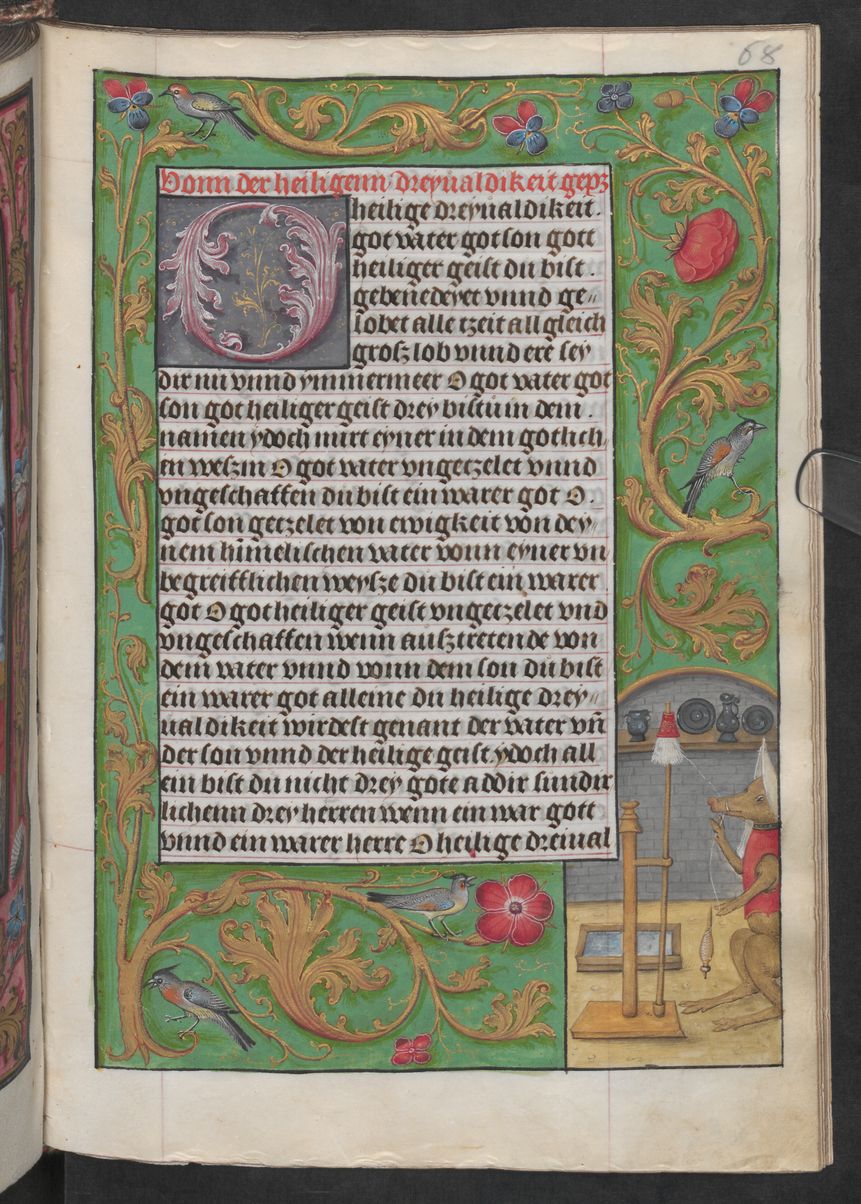 68
Vonn der heiligenn dreyualdikeit gepz
O heilige dreyualdikeit.
got vater got son gott
heiliger geist du bist.
gebenedeyet vnnd ge„
lobet alle tzeit all gleich
grosz lob vnnd ere sey
dir nu vnnd ymmermeer O got vater got
son got heiliger geist drey bistu in dem.
namen ydoch mirt eyner in dem gotlich
en weszin O got vater vngetzelet vnnd
vngeschaffen du bist ein warer got O.
got son getzelet von ewigkeit von dey„
nem himelischen vater vonn eyner vn
begreifflichen weysze du bist ein warer
got O got heiliger geist vngetzelet vnd
vngeschaffen wenn ausztretende von
dem vater vnnd vonn dem son du bist
ein warer got alleine du heilige drey„
ualdikeit wirdest genant der vater vn̄
der son vnnd der heilige geist ydoch all
ein bist du nicht drey gote addir sundir
lichenn drey herren wenn ein war gott
vnnd ein warer herre O heilige dreiual